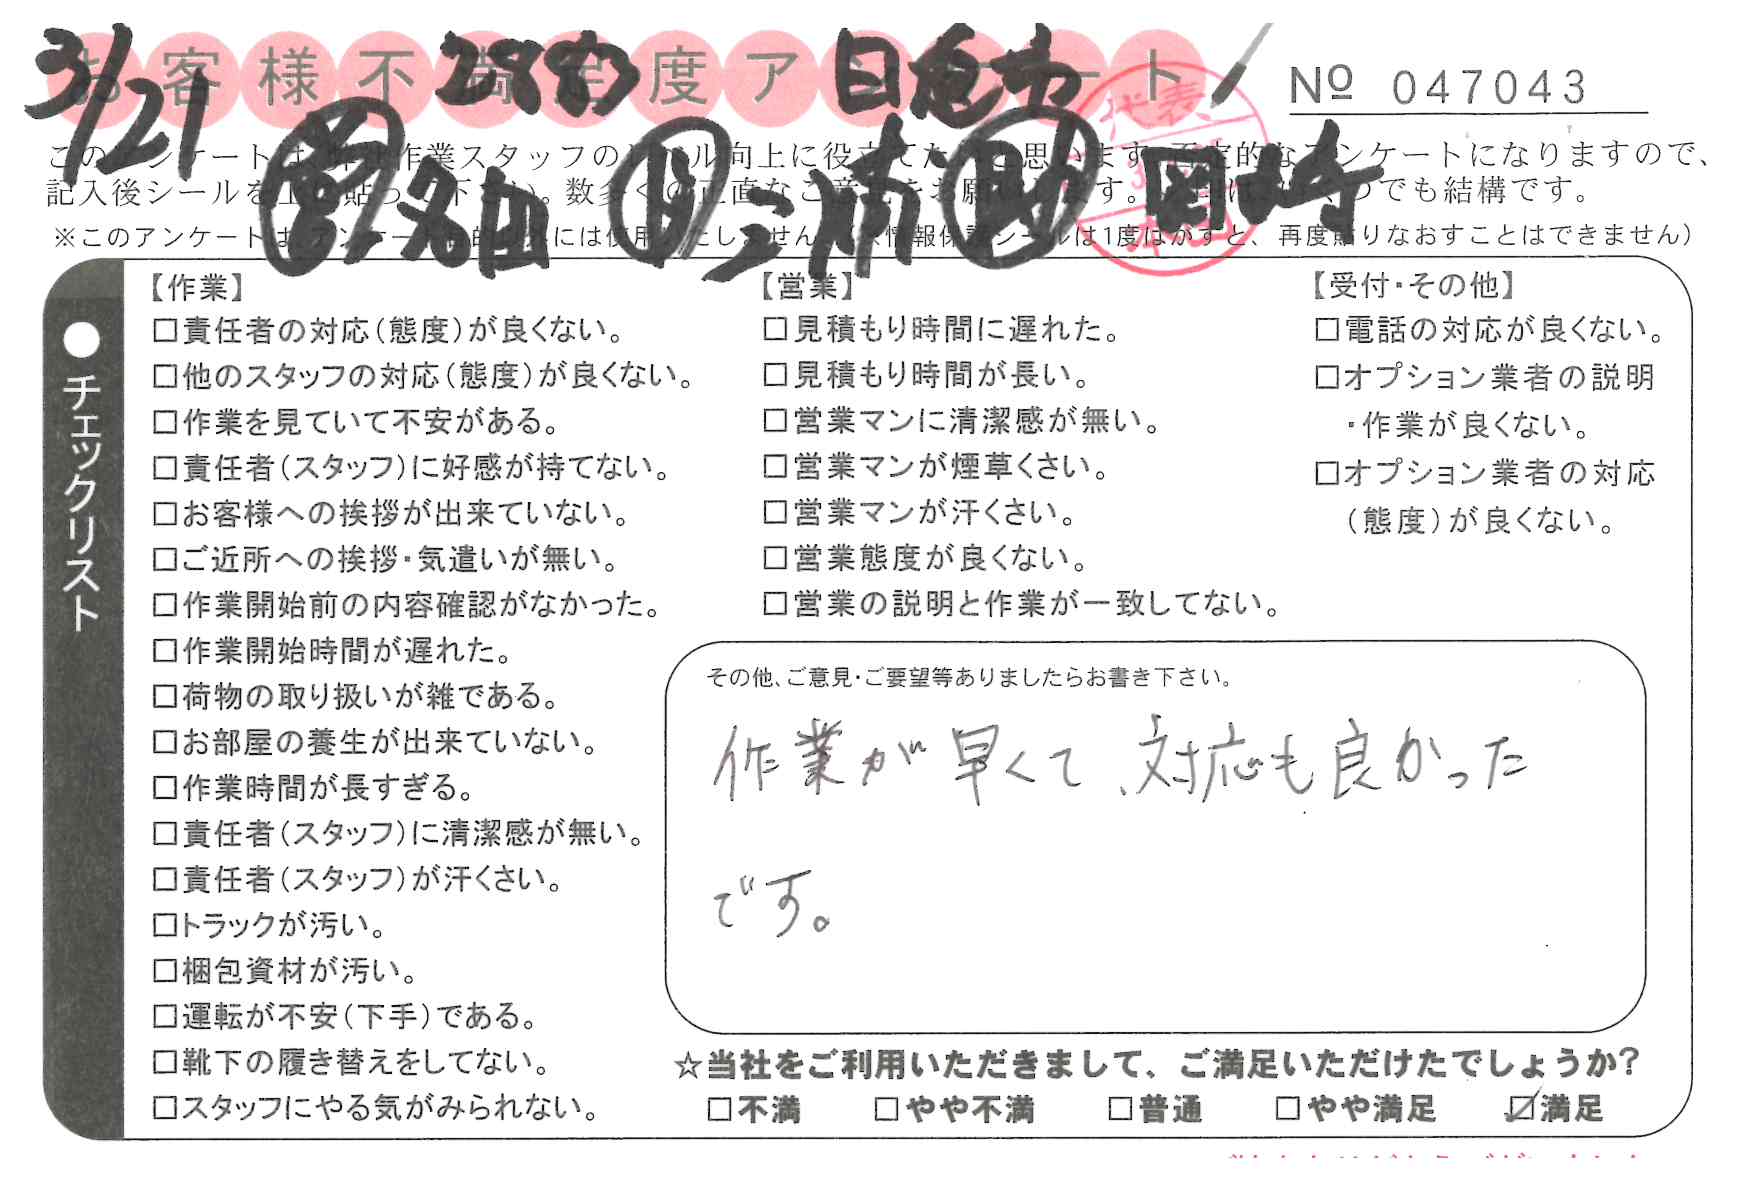 お客様不満足度アンケート
3/21
日
No 047043
代表
三浦
岡崎
※このアンケートは
再度貼りなおすことはできません)
●チェックリスト
【作業】
□責任者の対応(態度)が良くない。
□他のスタッフの対応(態度)が良くない。
□作業を見ていて不安がある。
□責任者(スタッフ)に好感が持てない。
□お客様への挨拶が出来ていない。
□ご近所への挨拶・気遣いが無い。
□作業開始前の内容確認がなかった。
□作業開始時間が遅れた。
□荷物の取り扱いが雑である。
□お部屋の養生が出来ていない。
□作業時間が長すぎる。
□責任者(スタッフ)に清潔感が無い。
□責任者(スタッフ)が汗くさい。
□トラックが汚い。
□梱包資材が汚い。
□運転が不安(下手)である。
□靴下の履き替えをしてない。
□スタッフにやる気がみられない。
【営業】
□見積もり時間に遅れた。
□見積もり時間が長い。
□営業マンに清潔感が無い。
□営業マンが煙草くさい。
□営業マンが汗くさい。
□営業態度が良くない。
□営業の説明と作業が一致してない。
【受付・その他】
□電話の対応が良くない。
□オプション業者の説明
・作業が良くない。
□オプション業者の対応
(態度)が良くない。
その他、ご意見・ご要望等ありましたらお書き下さい。
作業が早くて、対応も良かった
です。
☆当社をご利用いただきまして、ご満足いただけたでしょうか?
□不満 □やや不満 □普通 □やや満足 ☑満足